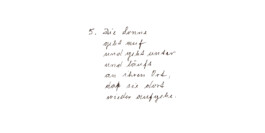 5. Die Sonne
geht auf
und geht unter
und läuft
an ihren Ort,
daß sie dort
wieder aufgehe.